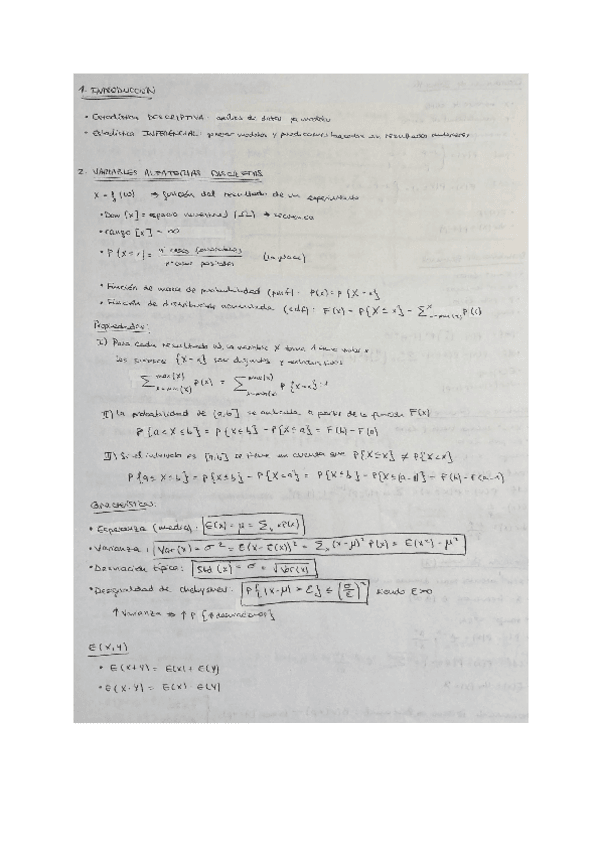 1. INTRODUCCIÓN
• Estadística DESCRIPTIVA: análisis de datos ya medidos
• Estadística INFERENCIAL: generar modelos y predicciones basandose en resultados anteriores
2. VARIABLES ALEATORIAS DISCRETAS
X = f(ω) → función del resultado de un experimento
• Dom [x] = espacio muestral (Ω) →
• rango [x] = ∞
• P{X=x} = nº casos favorables / nº casos posibles (Laplace)
• Función de masa de probabilidad (pmf): P(x) = P{X=x}
• Función de distribución acumulada (cdf): F(x) = P{X≤x} = Σ P(i)
Propiedades:
I) Para cada resultado ω, la variable X toma 1 único valor x
los sucesos {X=x} son disjuntos y exhaustivos
Σ P(x) = Σ P{X=x} = 1
II) La probabilidad de (a,b] se calcula a partir de la función F(x)
P{a<X≤b} = P{X≤b} - P{X≤a} = F(b) - F(a)
II) Si el intervalo es [a,b] se tiene en cuenta que P{X≤x} ≠ P{X<x}
P{a≤X≤b} = P{X≤b} - P{X<a} = P{X≤b} - P{X≤(a-1)} = F(b) - F(a-1)
Características:
• Esperanza (media): E(x) = μ = Σx xP(x)
• Varianza: Var(x) = σ² = E(x-E(x))² = Σx (x-μ)² P(x) = E(x²) - μ²
• Desviación típica: Std(x) = σ = √Var(x)
• Desigualdad de Chebyshev: P{|x-μ| > ε} ≤ (σ/ε)² siendo ε>0
↑ Varianza ⇒ ↑ P{↑desviaciones}
E(X,Y)
• E(X+Y) = E(X) + E(Y)
• E(X·Y) = E(X) · E(Y)